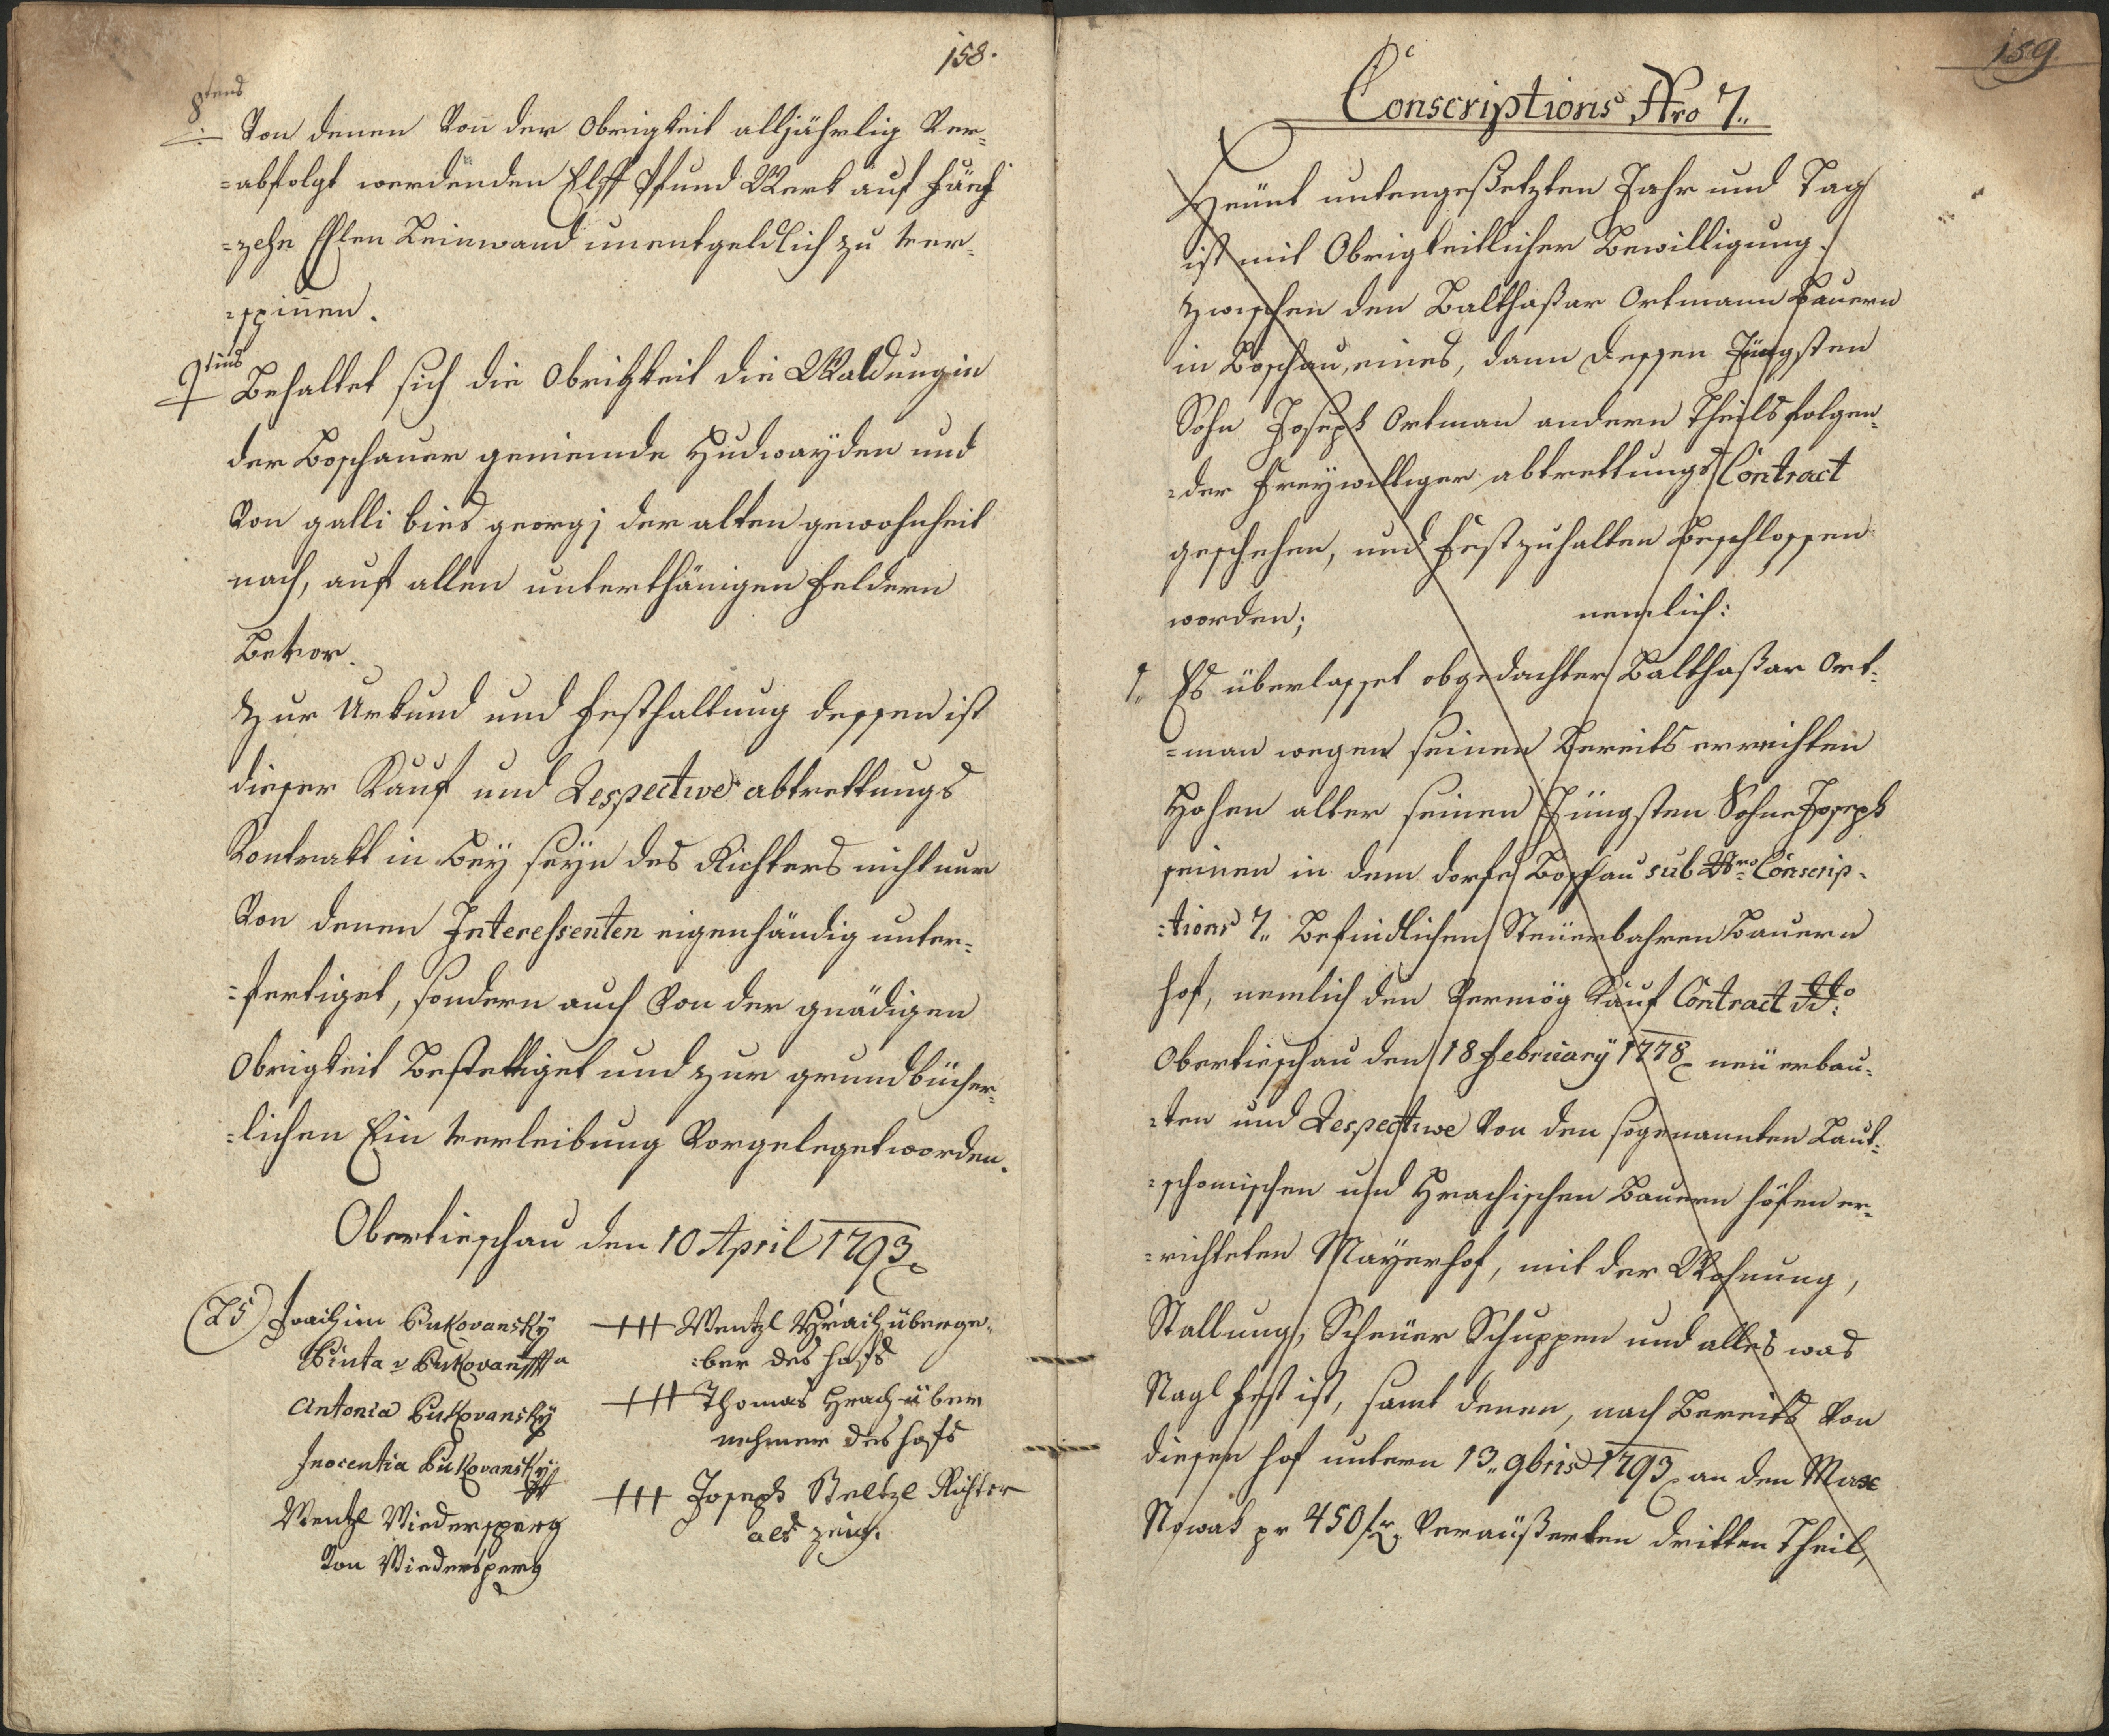 158.
8tens
Von denen Von der Obrigkeit alljährlig Ver-
=abfolgt werdenden Elff Pfund Werk auf Fünf
=zehn Ehlen Leinwand unentgeldlich zu ver-
=spinnen.
9tens
Behaltet sich die Obrigkeit die Waldung in
der Boschauer gemeinde Hudwayden und
Von galli bies georgj der alten gewohnheit
nach, auf allen unterthänigen Feldern
Bevor.
Zur Urkund und Festhaltung dessen ist
dieser Kauf und Respective abtrettungs
Kontrakt in Bey seyn des Richters nicht nur
Von denen Interessenten eigenhändig unter-
=fertiget, sondern auch Von der gnädigen
Obrigkeit Bestettiget und zur grundbücher-
=lichen Ein verleibung Vorgeleget worden.
Obertieschau den 10 April 1793
(LS) Joachim Bukovansky
Antonia Bukovansky
Inocentia Bukovansky
Wentzl Widersperg
Von Widersperg
+++ Wentzl Hrach überge-
=ber des hofs
+++ Thomas Hrach über
nehmer des hofs
+++ Joseph Beltzl Richter
als zeig.
159
Conscriptions Nro 7.
Heünt untengesetzten Jahr und Tag
ist mit Obrigkeitlicher Bewilligung
zwischen den Balthasar Ortmann Bauern
in Boschau, eines, dann dessen Jüngsten
Sohn Joseph Ortman andern Theils folgen-
=der Freywilliger abtrettungs Contract
geschehen, und Festzuhalten Beschlossen
worden; nemlich:
1. Es überlasset obgedachter Balthasar Ort-
=man wegen seinen Bereits erreichten
Hohen alter seinen Jüngsten Sohne Joseph
seinen in dem dorfe Boschau sub Nro Conscrip-
=tions 7. Befindlichen Steüerbahren Bauern
hof, nemlich den Vermög Kauf Contract ddto
Obertieschau den 18 February 1778 neü erbau-
=ten und Respective Von den sogenannten Laut-
=schomischen und Hrachischen Bauern höfen er-
=richteten Mayerhof, mit der Wohnung,
Stallung, Scheüer Schuppen und alles was
Nagl fest ist, samt denen, nach Bereits Von
diesen hof untern 13. 9bris 1793 an den Max
Nowak pr 450 fr. Veräußerten dritten Theil,